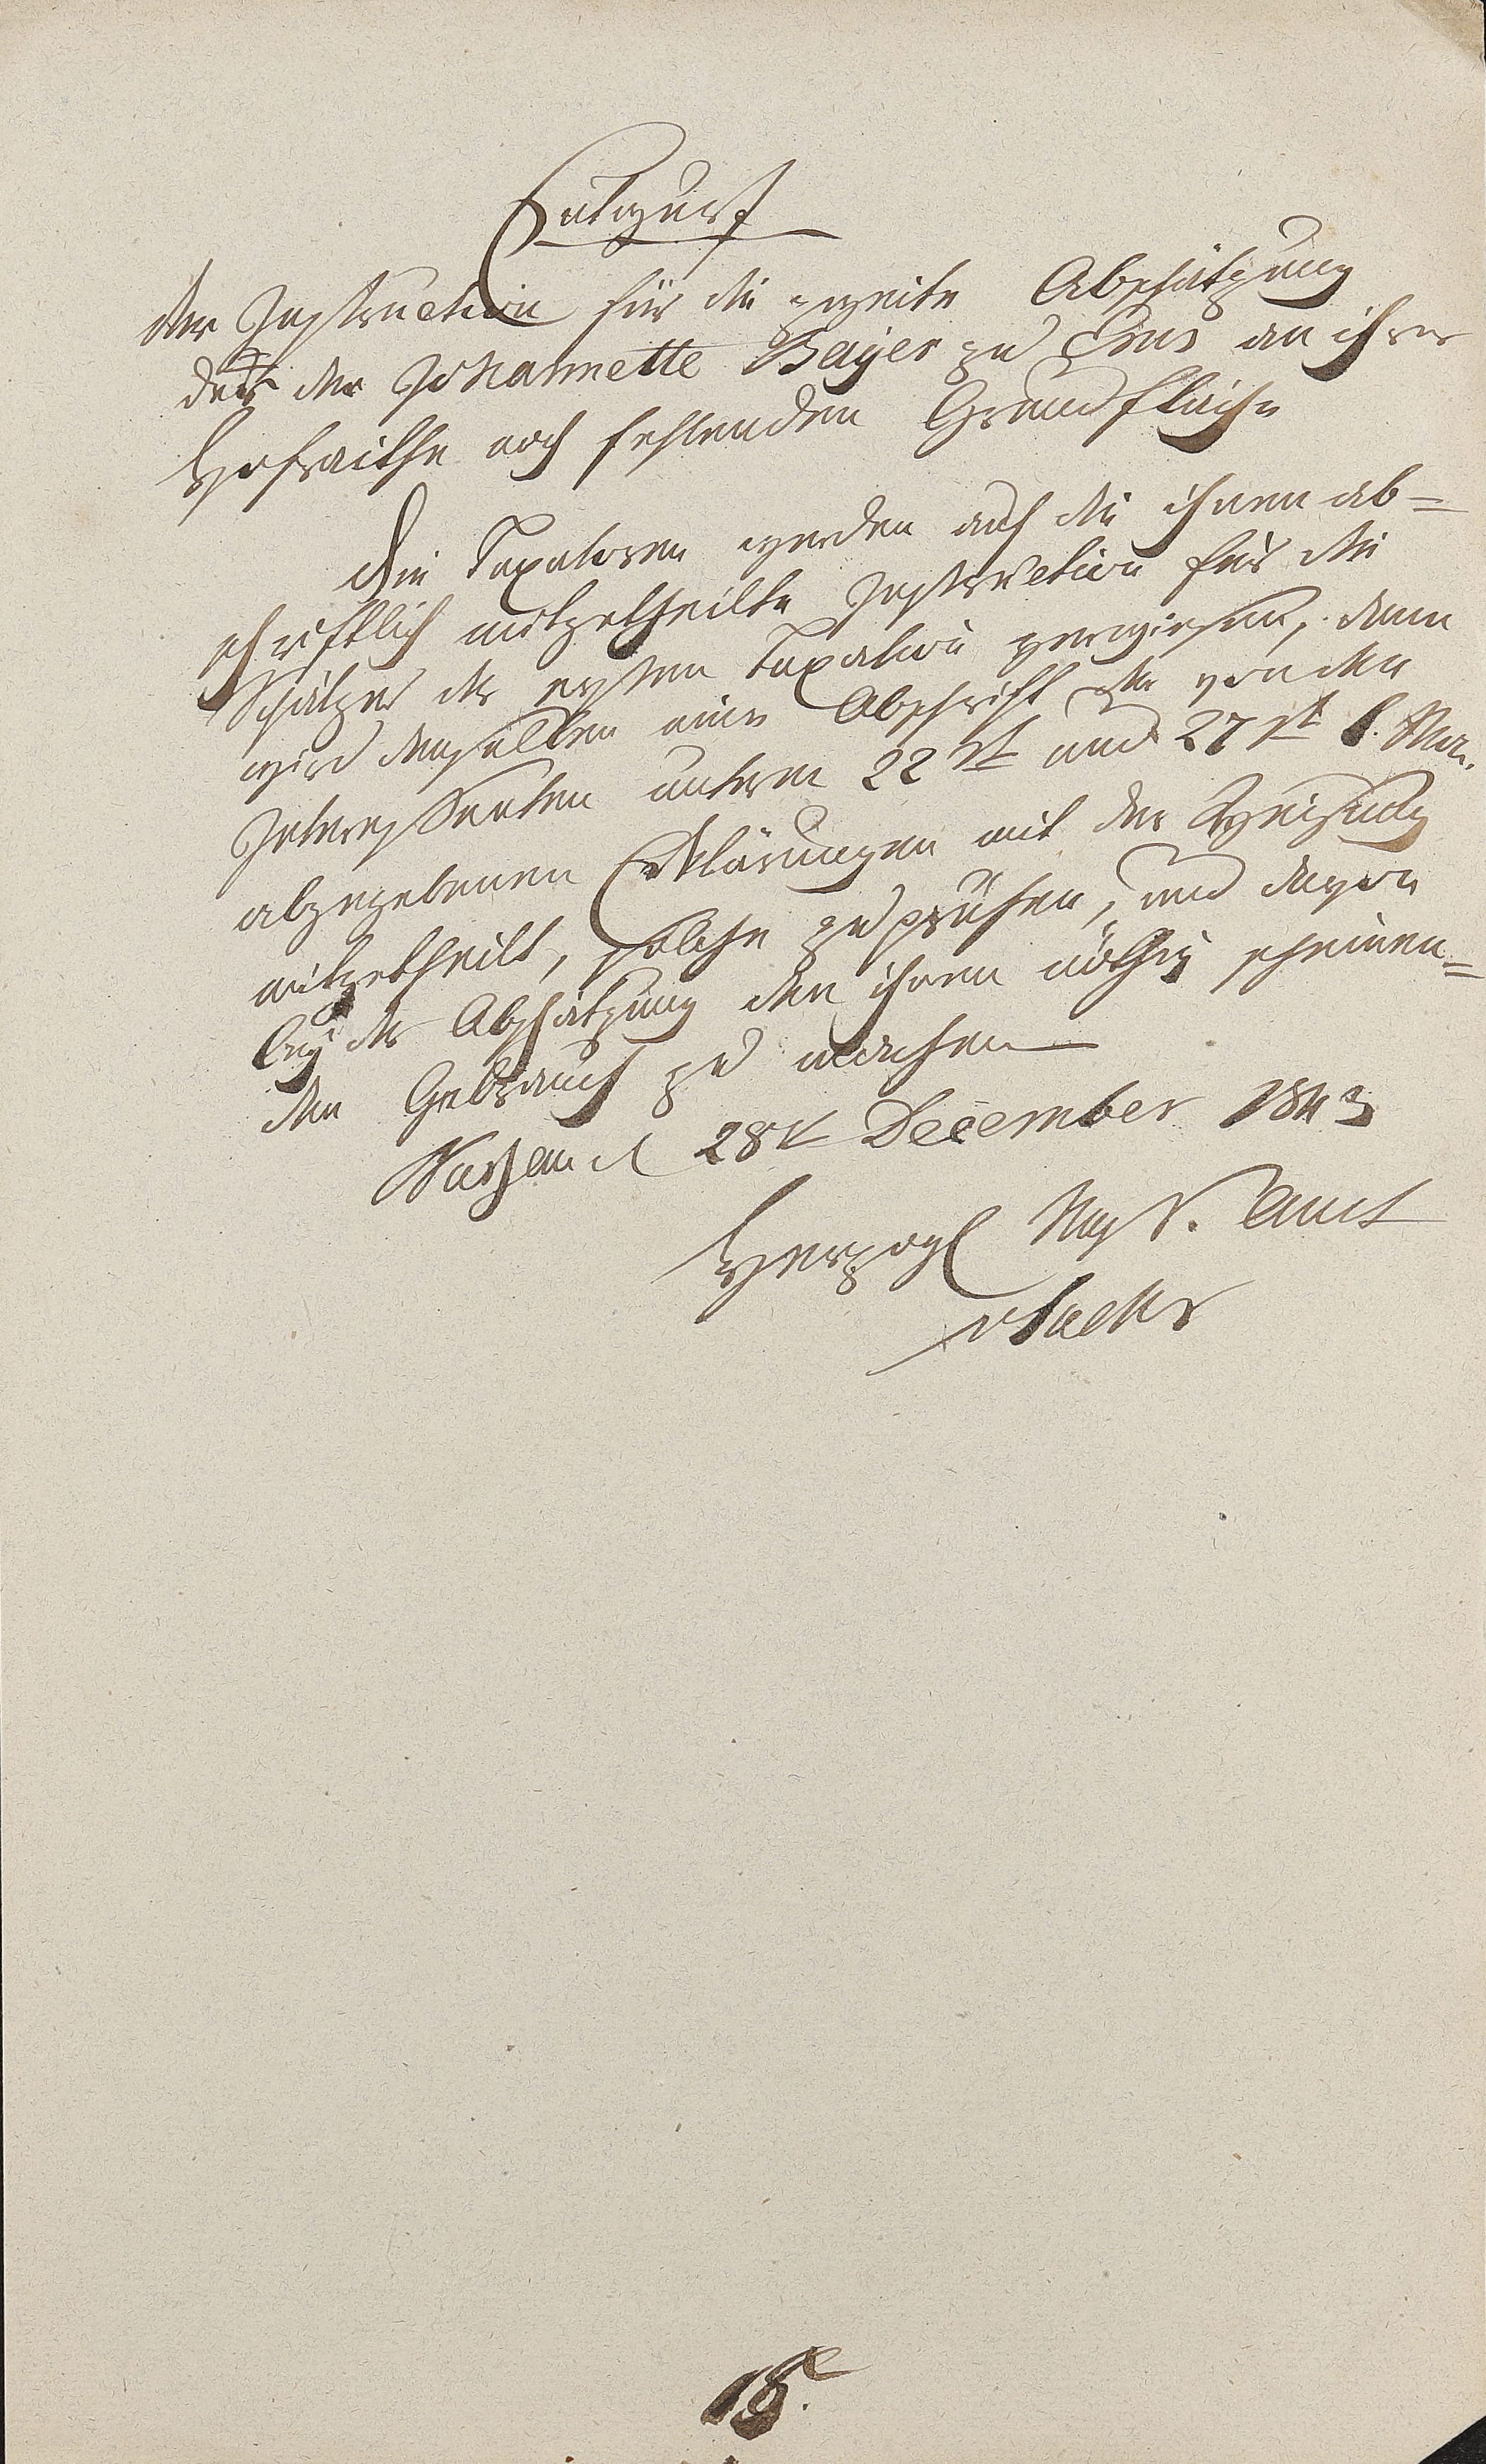 Entwurf
der Instruction für die zweite Abschätzung
der der Johannette Bayer zu Ems an ihrer
Hofraithe noch fehlenden Grundfläche
Die Taxatoren werden auf die ihnen ab-
schriftlich mitgetheilte Instruction für die
Schätzer der ersten Taxation verwiesen, dann
wird denselben eine Abschrift der von den
Interessenten unterm 22ten und 27ten l. Mts.
abgegebenen Erklärungen mit der Weisung
mitgetheilt, solche zu prüfen, und davon
bey der Abschätzung den ihnen nöthig scheinen-
den Gebrauch zu machen
Nassau d 28t December 1843
Herzogl Nass. Amt
18.